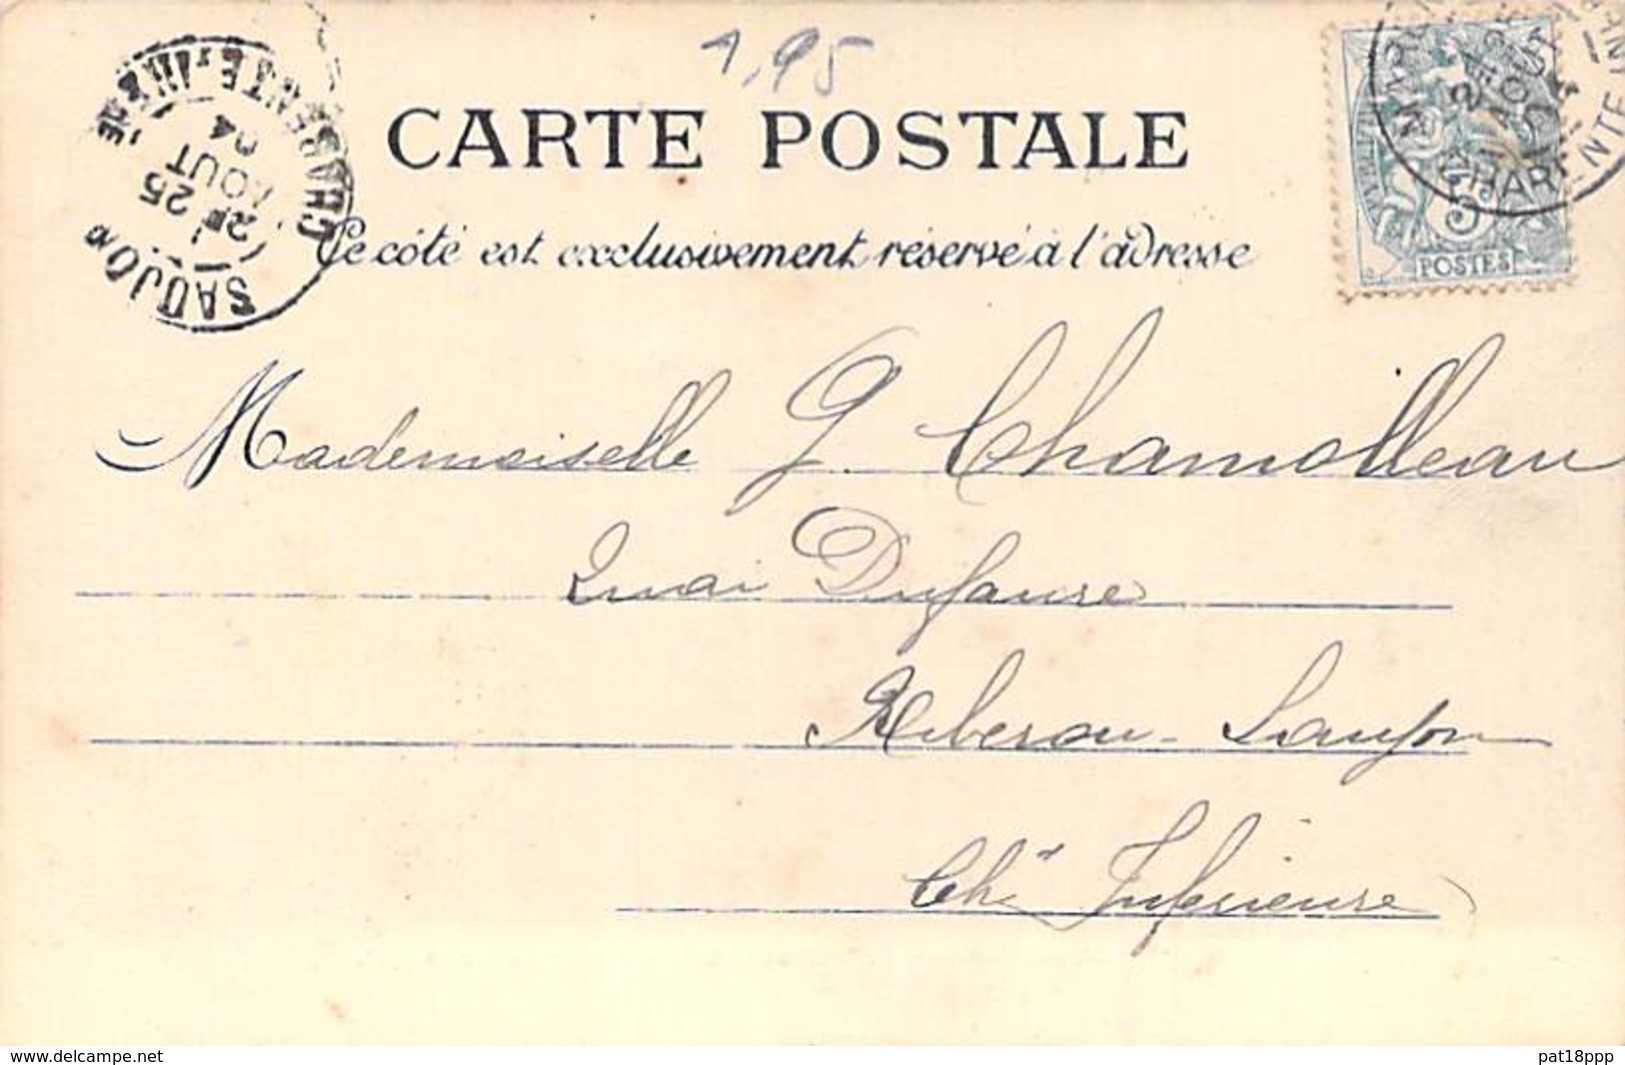 1,95
CARTE POSTALE
Ce côté est exclusivement réservé à l'adresse
SAUJON
CHARENTE INFRE
2E
25
AOUT
04
AOUT
04
CHARENTE
5
POSTES
Mademoiselle G. Chamolleau
Quai Dufaure
Riberou - Saujon
Chte Inférieure
www.delcampe.net
pat18ppp